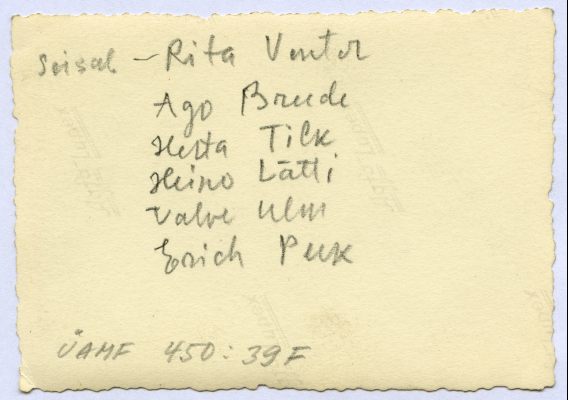 Seisab – Rita Ventor
Ago Breede
Herta Tilk
Heino Lätti
Valve Ulm
Erich Peek
ÜAMF 450:39 F